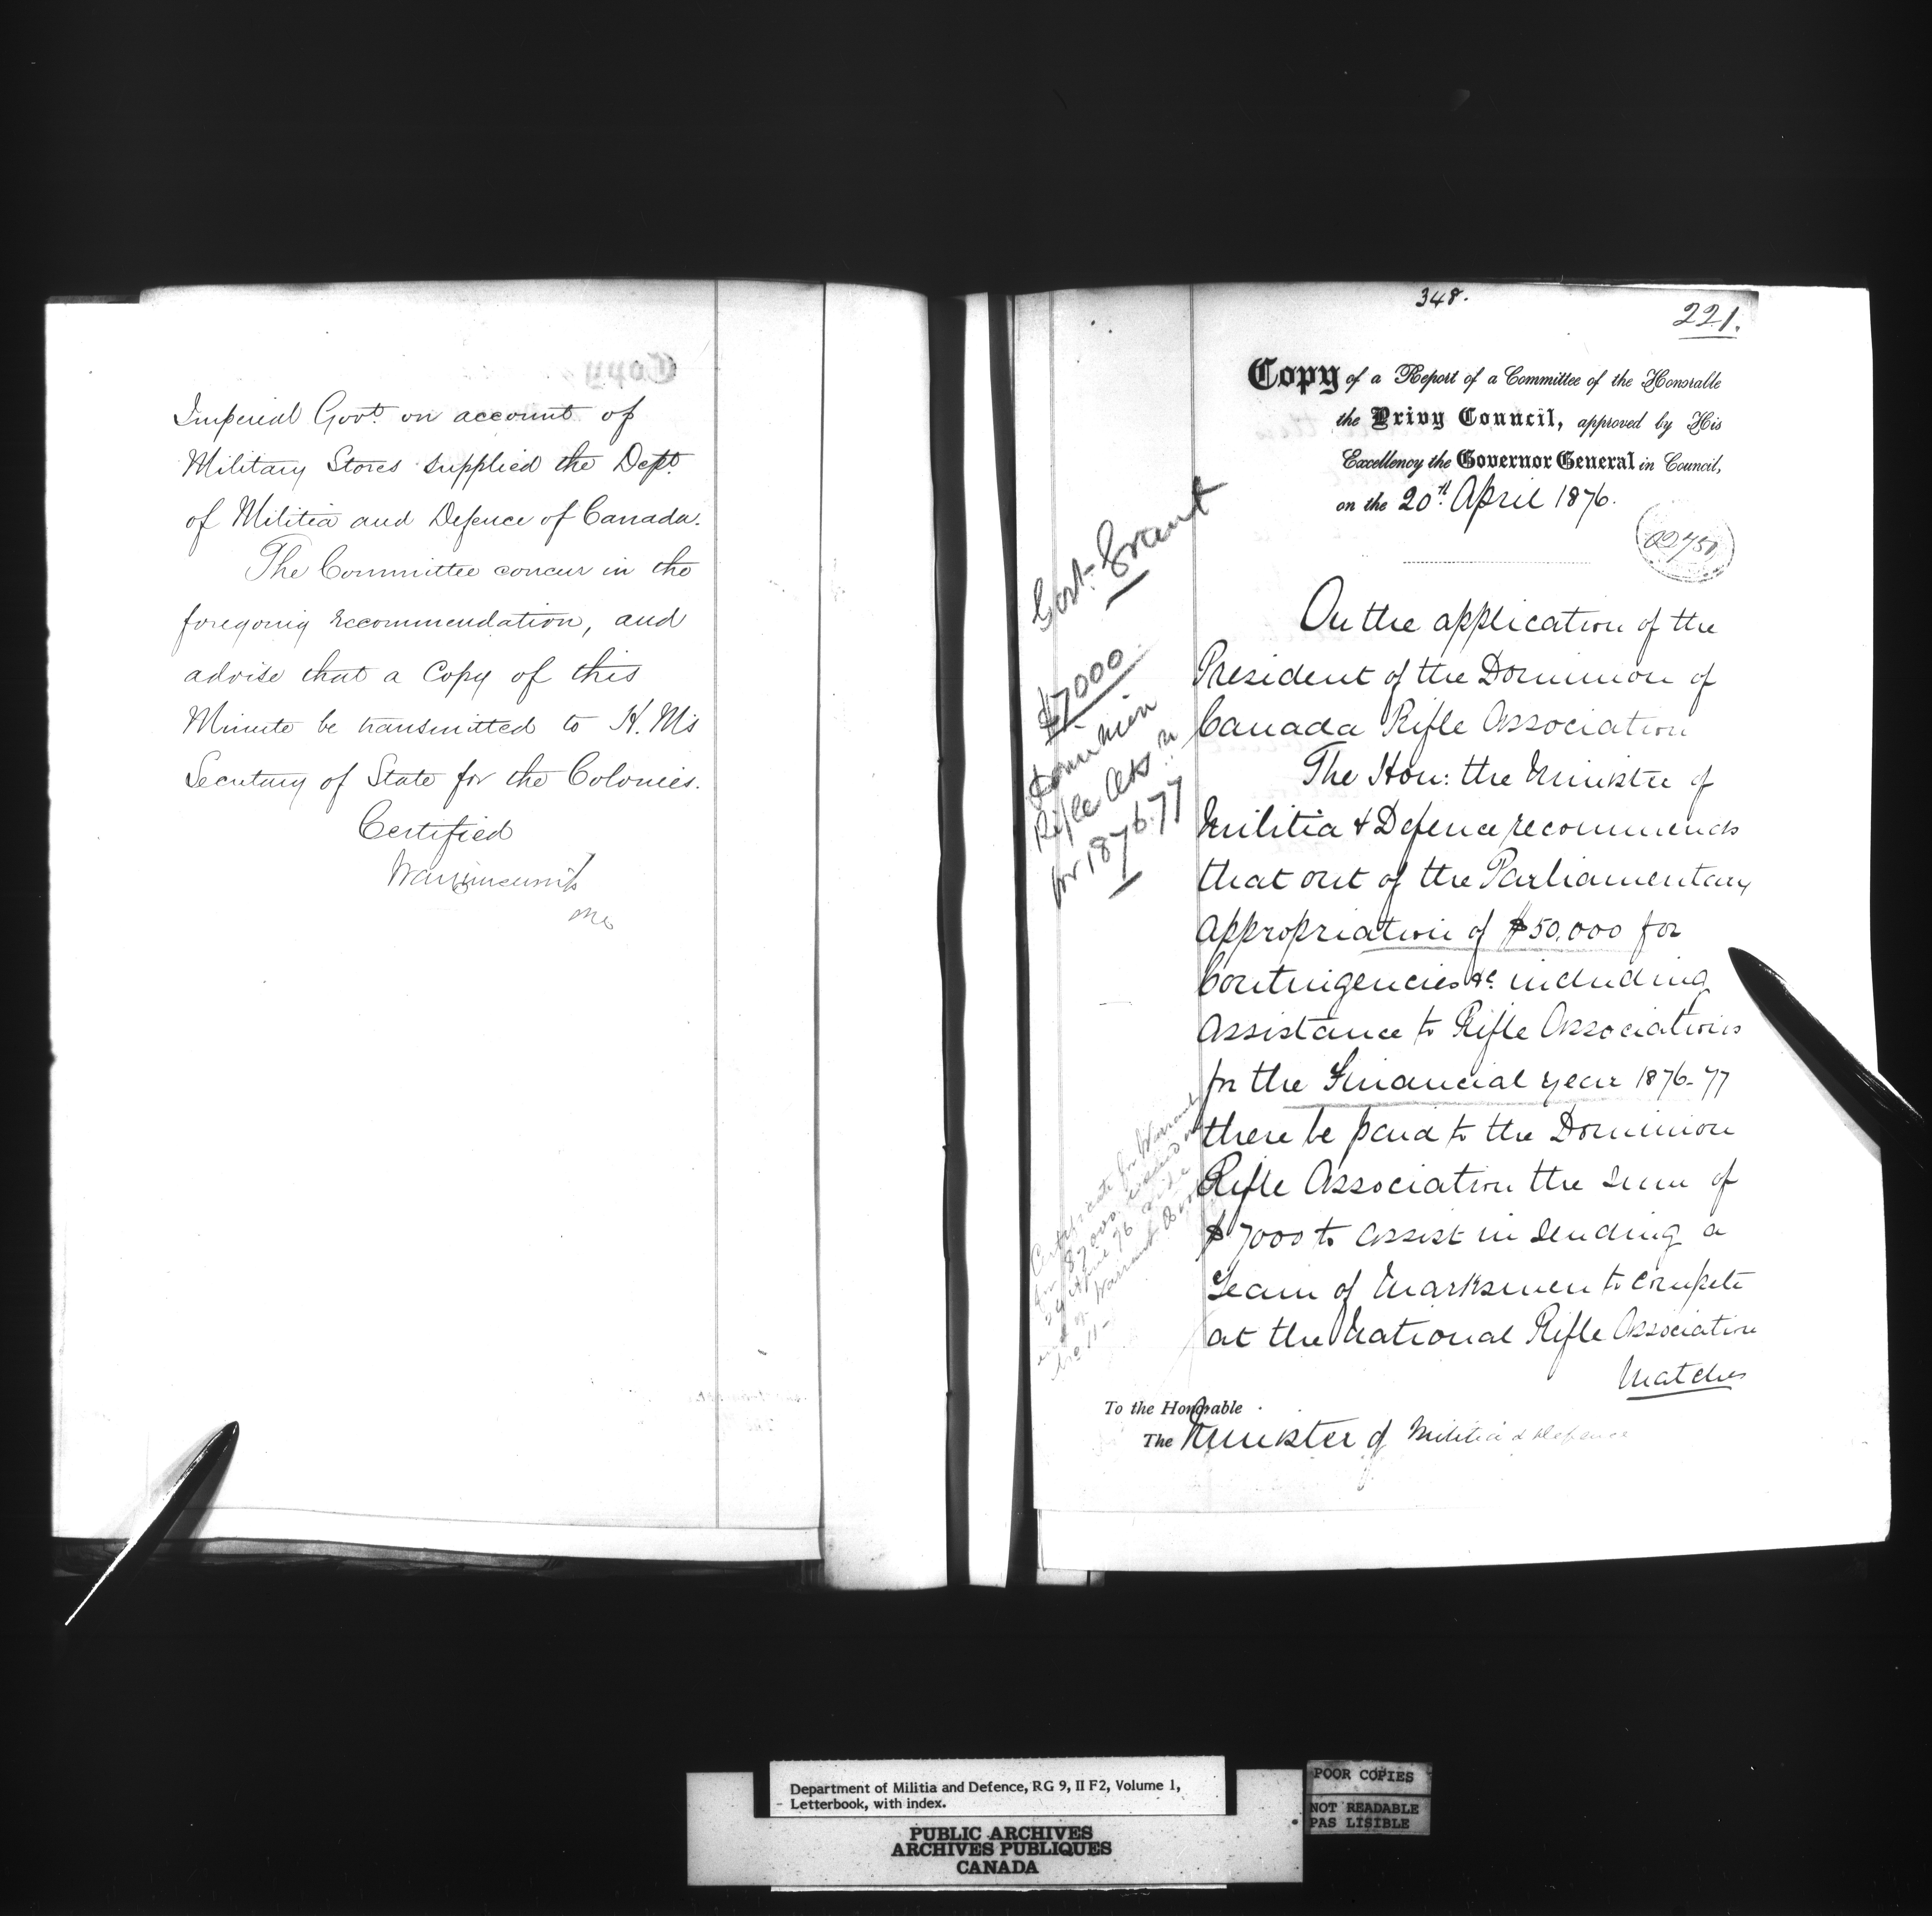 Imperial Govt. on account of
Military Stores supplied the Dept.
of Militia and Defence of Canada.
The Committee concur in the
foregoing recommendation, and
advise that a Copy of this
Minute be transmitted to H. M's
Secretary of State for the Colonies.
Certified
348.
221.
Copy of a Report of a Committee of the Honorable
the Privy Council, approved by His
Excellency the Governor General in Council,
on the 20th April 1876.
On the application of the
President of the Dominion of
Canada Rifle Association
The Hon: the Minister of
Militia & Defence recommends
that out of the Parliamentary
Appropriation of $50,000 for
Contingencies &c. including
Assistance to Rifle Associations
for the Financial year 1876-77
there be paid to the Dominion
Rifle Association the sum of
$7000 to assist in sending a
Team of Marksmen to compete
at the National Rifle Association
Matches
To the Honorable
The Minister of Militia & Defence
Govt. Grant
$7000
Dominion
Rifle Ass n
for 1876.77
Certificate for Warrant
for $7000 issued on
April 76 vide
Warrant Book
No 11-
Department of Militia and Defence, RG 9, II F2, Volume 1,
Letterbook, with index.
PUBLIC ARCHIVES
ARCHIVES PUBLIQUES
CANADA
POOR COPIES
NOT READABLE
PAS LISIBLE